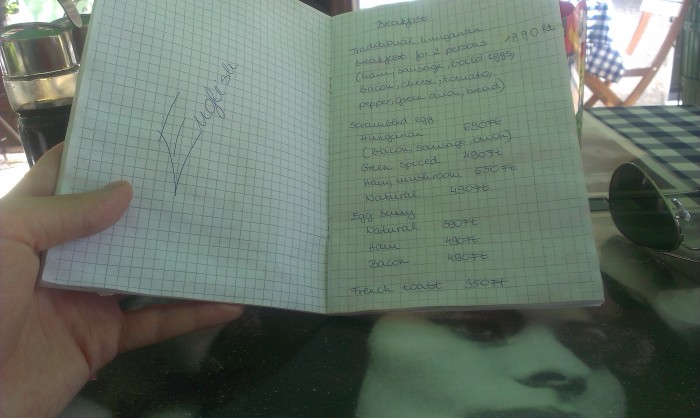 English
Breakfast
Traditional Hungarian
breakfast for 2 persons 1990 Ft
(ham, sausage, boiled eggs,
bacon, cheese, tomato,
pepper, green onion, bread)
Scrambled egg
Hungarian 690Ft
(bacon, sausage, onion)
Green spiced 490Ft
Ham, mushroom 690Ft
Natural 490Ft
Egg
Natural 390Ft
Ham 490Ft
Bacon 490Ft
French toast 350Ft